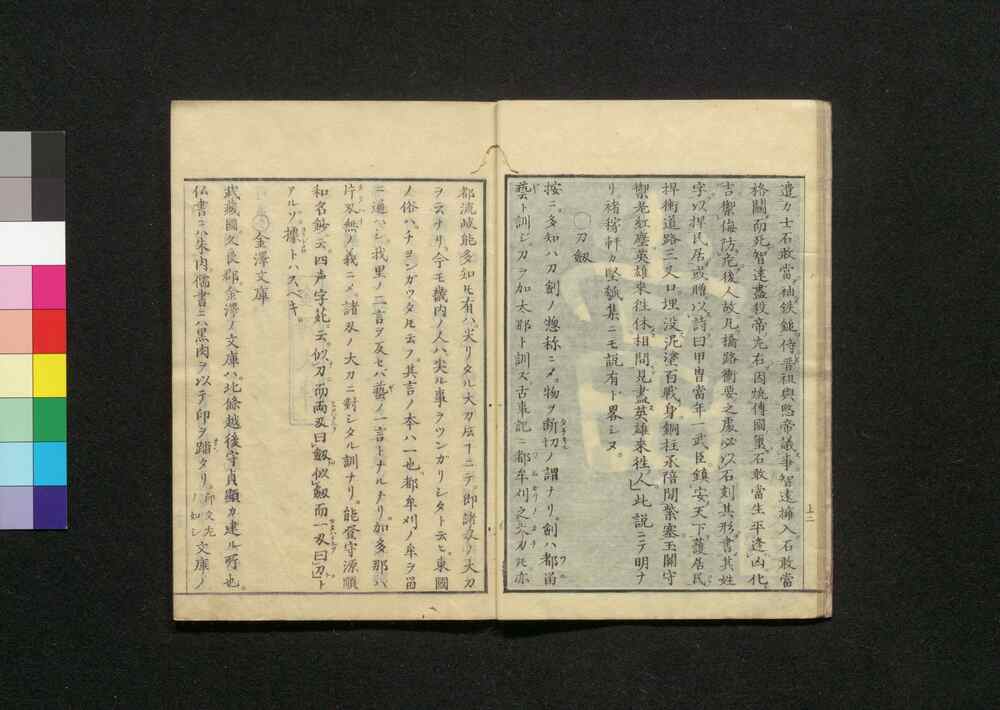 遣力士石敢當袖鉄鎚侍晋祖與愍帝議事智遠擁入石敢當
格鬭而死智遠盡殺帝左右因燒傳國璽石敢當生平逢凶化
吉禦侮防危後人故凡橋路衝要之處必以石刻其形書其姓
字以捍民居或贈以詩曰甲冑當年一武臣鎮安天下護居民
捍衝道路三叉口埋没泥塗百戰身銅柱承陪間紫塞玉關守
禦老紅塵英雄來往休相問見盡英雄來往人此説ニテ明ナ
リ褚稼軒カ堅瓠集ニモ説有ト畧シヌ
〇刀劔
按ニ多知ハ刀劔ノ惣称ニメ物ヲ断切ノ謂ナリ劔ハ都留
藝ト訓ジ刀ヲ加太那ト訓ズ古事記ニ都牟刈之大刀ㇳモ亦
都流岐能多知ㇳモ有ハ尖リタル大刀ㇳ云ヿニテ即諸刄ノ大刀
ヲ云ナリ今モ畿内ノ人ハ尖ル事ヲツンガリシタト云ヒ東國
ノ俗ハチヨンガツタㇳモ云フ其言ノ本ハ一也都牟刈ノ牟ヲ留
ニ通ハシ我里ノ二言ヲ反セバ藝ノ一言トナルナリ加多那ハ
片刄無ノ義ニメ諸刄ノ大刀ニ對シタル訓ナリ能登守源順
和名鈔云四声字苑云似刀而兩刄曰劔似劔而一刄曰刀ト
アルゾ據トハスベキ
〇金澤文庫
武蔵國久良郡金澤ノ文庫ハ北條越後守貞顯カ建ル所也
仏書ニハ朱肉儒書ニハ黒肉ヲ以テ印ヲ蹈タリ印文先ノ如シ文庫ノ
上二